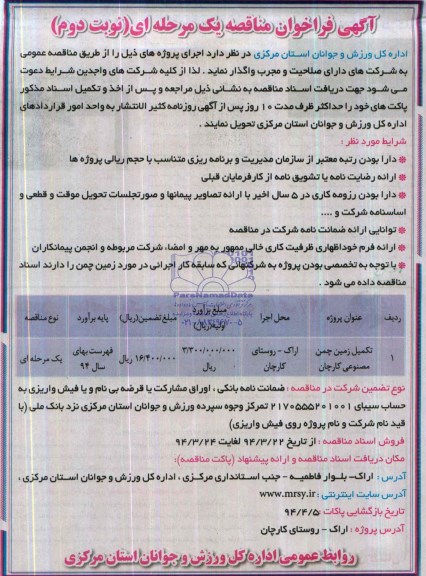 آگهی فراخوان مناقصه یک مرحله ای(نوبت دوم)
اداره کل ورزش و جوانان استان مرکزی در نظر دارد اجرای پروژه های ذیل را از طریق مناقصه عمومی
به شرکت های دارای صلاحیت و مجرب واگذار نماید . لذا از کلیه شرکت های واجدین شرایط دعوت
می شود جهت دریافت اسناد مناقصه به نشانی ذیل مراجعه و پس از اخذ و تکمیل اسناد مذکور
پاکت های خود را حداکثر ظرف مدت ۱۰ روز پس از آگهی روزنامه کثیر الانتشار به واحد امور قراردادهای
اداره کل ورزش و جوانان استان مرکزی تحویل نمایند .
شرایط مورد نظر :
* دارا بودن رتبه معتبر از سازمان مدیریت و برنامه ریزی متناسب با حجم ریالی پروژه ها
* ارائه رضایت نامه یا تشویق نامه از کارفرمایان قبلی
* دارا بودن رزومه کاری در ۵ سال اخیر با ارائه تصاویر پیمانها و صورتجلسات تحویل موقت و قطعی و
اساسنامه شرکت و ....
* توانایی ارائه ضمانت نامه شرکت در مناقصه
* ارائه فرم خوداظهاری ظرفیت کاری خالی ممهور به مهر و امضاء شرکت مربوطه و انجمن پیمانکاران
* با توجه به تخصصی بودن پروژه به شرکتهائی که سابقه کار اجرائی در مورد زمین چمن را دارند اسناد
مناقصه داده می شود .
ردیف عنوان پروژه محل اجرا مبلغ برآورد اولیه(ریال) مبلغ تضمین(ریال) پایه برآورد نوع مناقصه
۱ تکمیل زمین چمن مصنوعی کارچان اراک - روستای کارچان ۳/۳۰۰/۰۰۰/۰۰۰ ریال ۱۶/۴۰۰/۰۰۰ ریال فهرست بهای سال ۹۴ یک مرحله ای
نوع تضمین شرکت در مناقصه : ضمانت نامه بانکی ، اوراق مشارکت یا قرضه بی نام و یا فیش واریزی به
حساب سیبای ۲۱۷۰۵۵۵۲۰۱۰۰۱ تمرکز وجوه سپرده ورزش و جوانان استان مرکزی نزد بانک ملی (با
قید نام شرکت و نام پروژه روی فیش واریزی)
فروش اسناد مناقصه : از تاریخ ۹۴/۳/۲۲ لغایت ۹۴/۳/۲۴
مکان دریافت اسناد مناقصه و ارائه پیشنهاد (پاکت مناقصه):
آدرس : اراک- بلوار فاطمیه - جنب استانداری مرکزی ، اداره کل ورزش و جوانان استان مرکزی .
آدرس سایت اینترنتی : www.mrsy.ir
تاریخ بازگشایی پاکات :۹۴/۴/۵
آدرس پروژه : اراک - روستای کارچان
روابط عمومی اداره کل ورزش و جوانان استان مرکزی